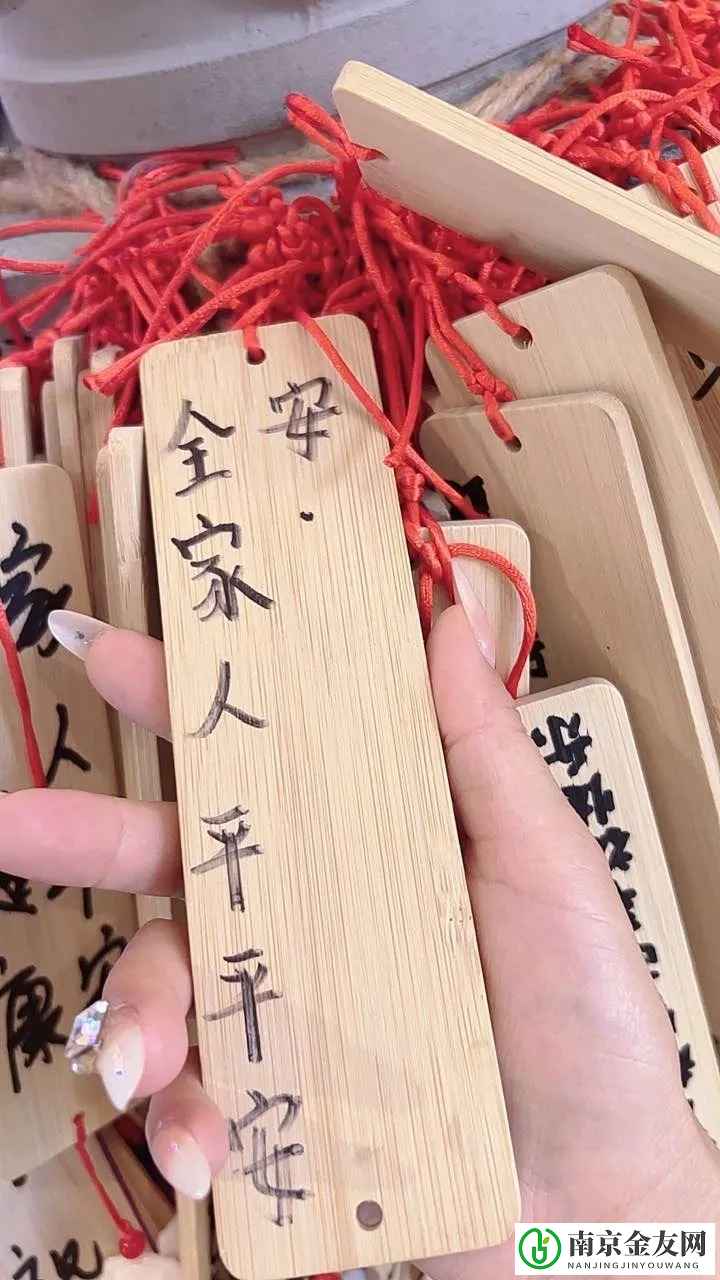 全家人平平安
安.
家
人
康
安
南京金友网
NANJINGJINYOUWANG